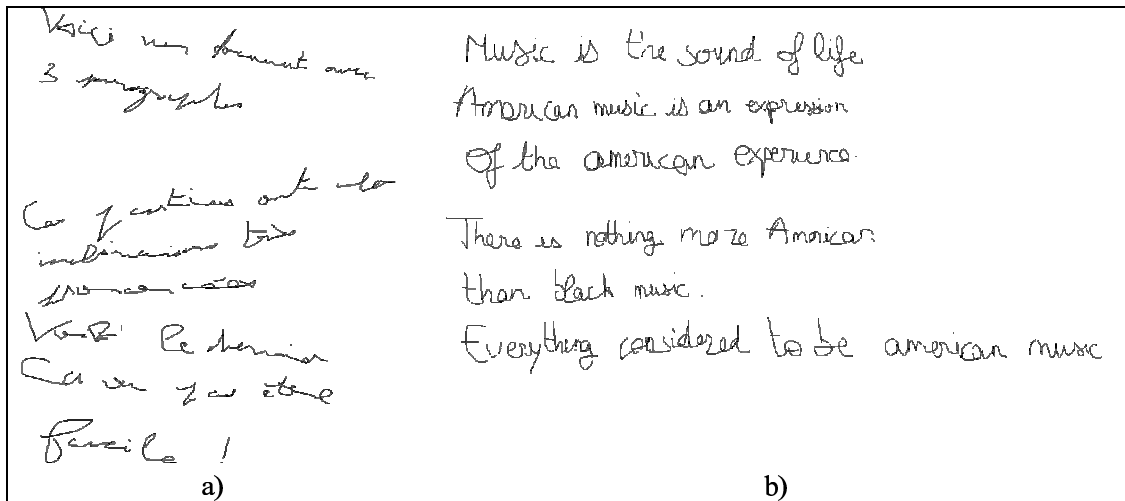 Voici un document avec
3 paragraphes
Ces parties ont des
inclinaisons très
prononcées
Voici le dernier
Ca va pas être
facile !
a)
Music is the sound of life
American music is an expression
Of the american experience.
There is nothing more American
than black music.
Everything considered to be american music
b)